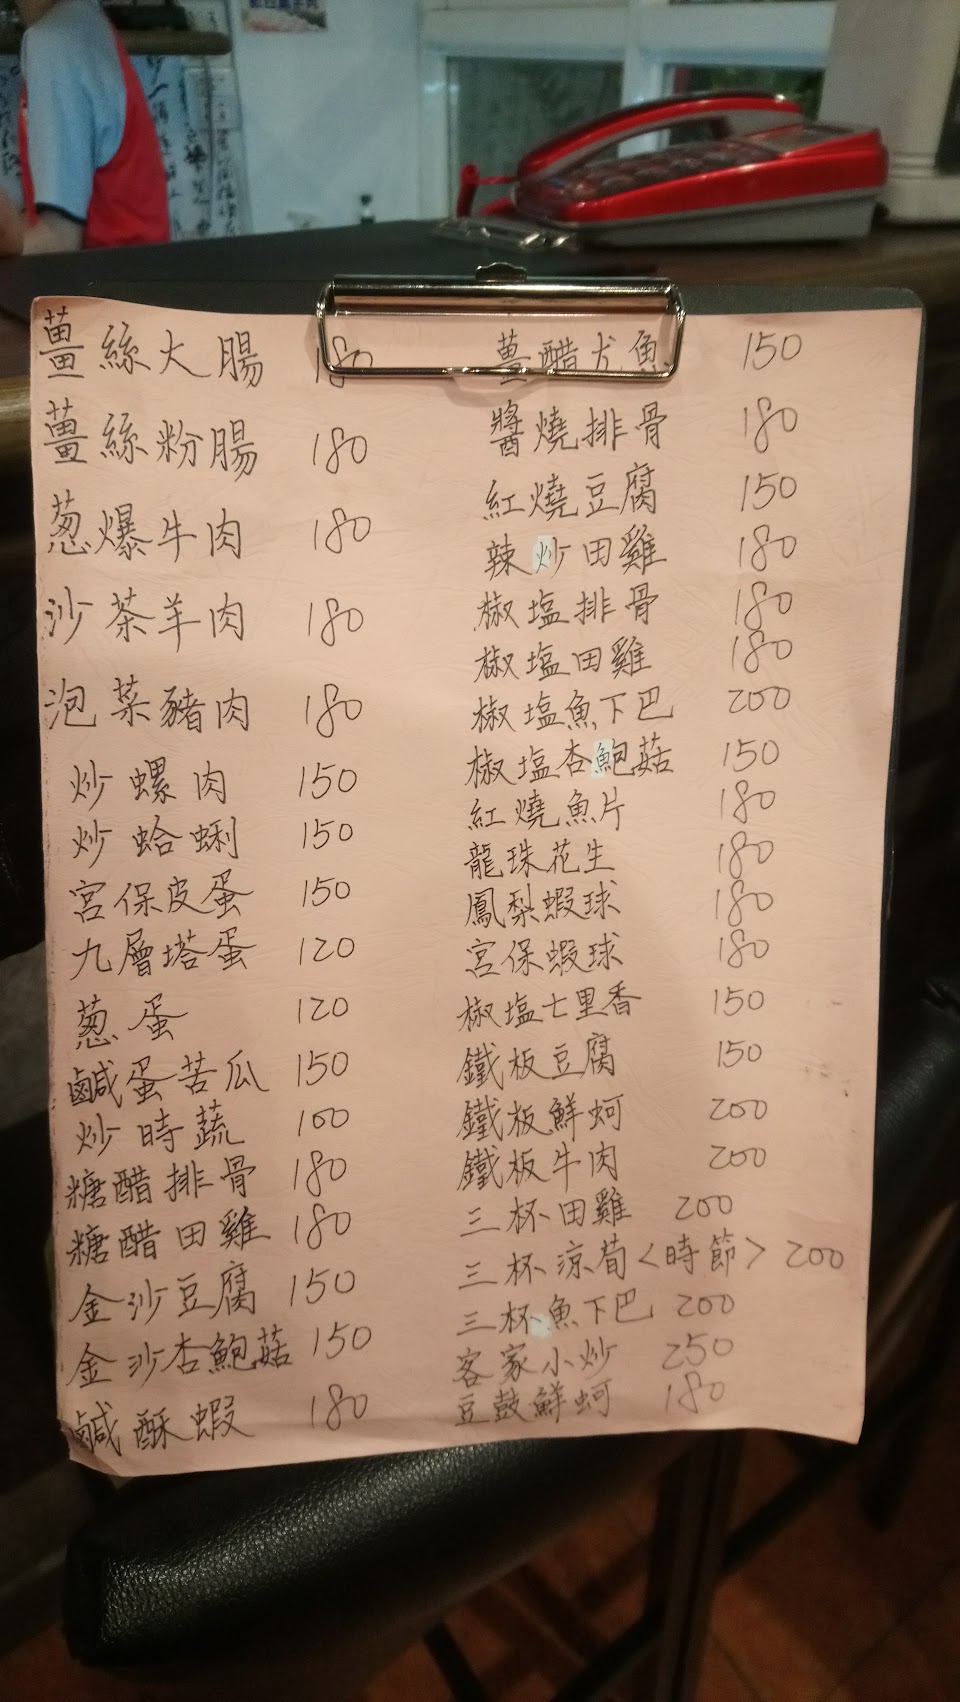 薑絲大腸 180
薑絲粉腸 180
葱爆牛肉 180
沙茶羊肉 180
泡菜豬肉 180
炒螺肉 150
炒蛤蜊 150
宮保皮蛋 150
九層塔蛋 120
葱蛋 120
鹹蛋苦瓜 150
炒時蔬 100
糖醋排骨 180
糖醋田雞 180
金沙豆腐 150
金沙杏鮑菇 150
鹹酥蝦 180
薑醋尤魚 150
醬燒排骨 180
紅燒豆腐 150
辣炒田雞 180
椒塩排骨 180
椒塩田雞 180
椒塩魚下巴 200
椒塩杏鮑菇 150
紅燒魚片 180
龍珠花生 180
鳳梨蝦球 180
宮保蝦球 180
椒塩七里香 150
鐵板豆腐 150
鐵板鮮蚵 200
鐵板牛肉 200
三杯田雞 200
三杯涼荀<時節> 200
三杯魚下巴 200
客家小炒 250
豆鼓鮮蚵 180